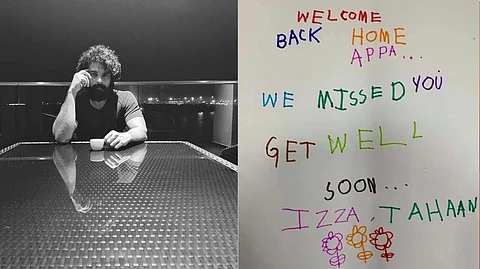 WELCOME
BACK HOME
APPA...
WE MISSED YOU
GET WELL
SOON...
IZZA, TAHAAN